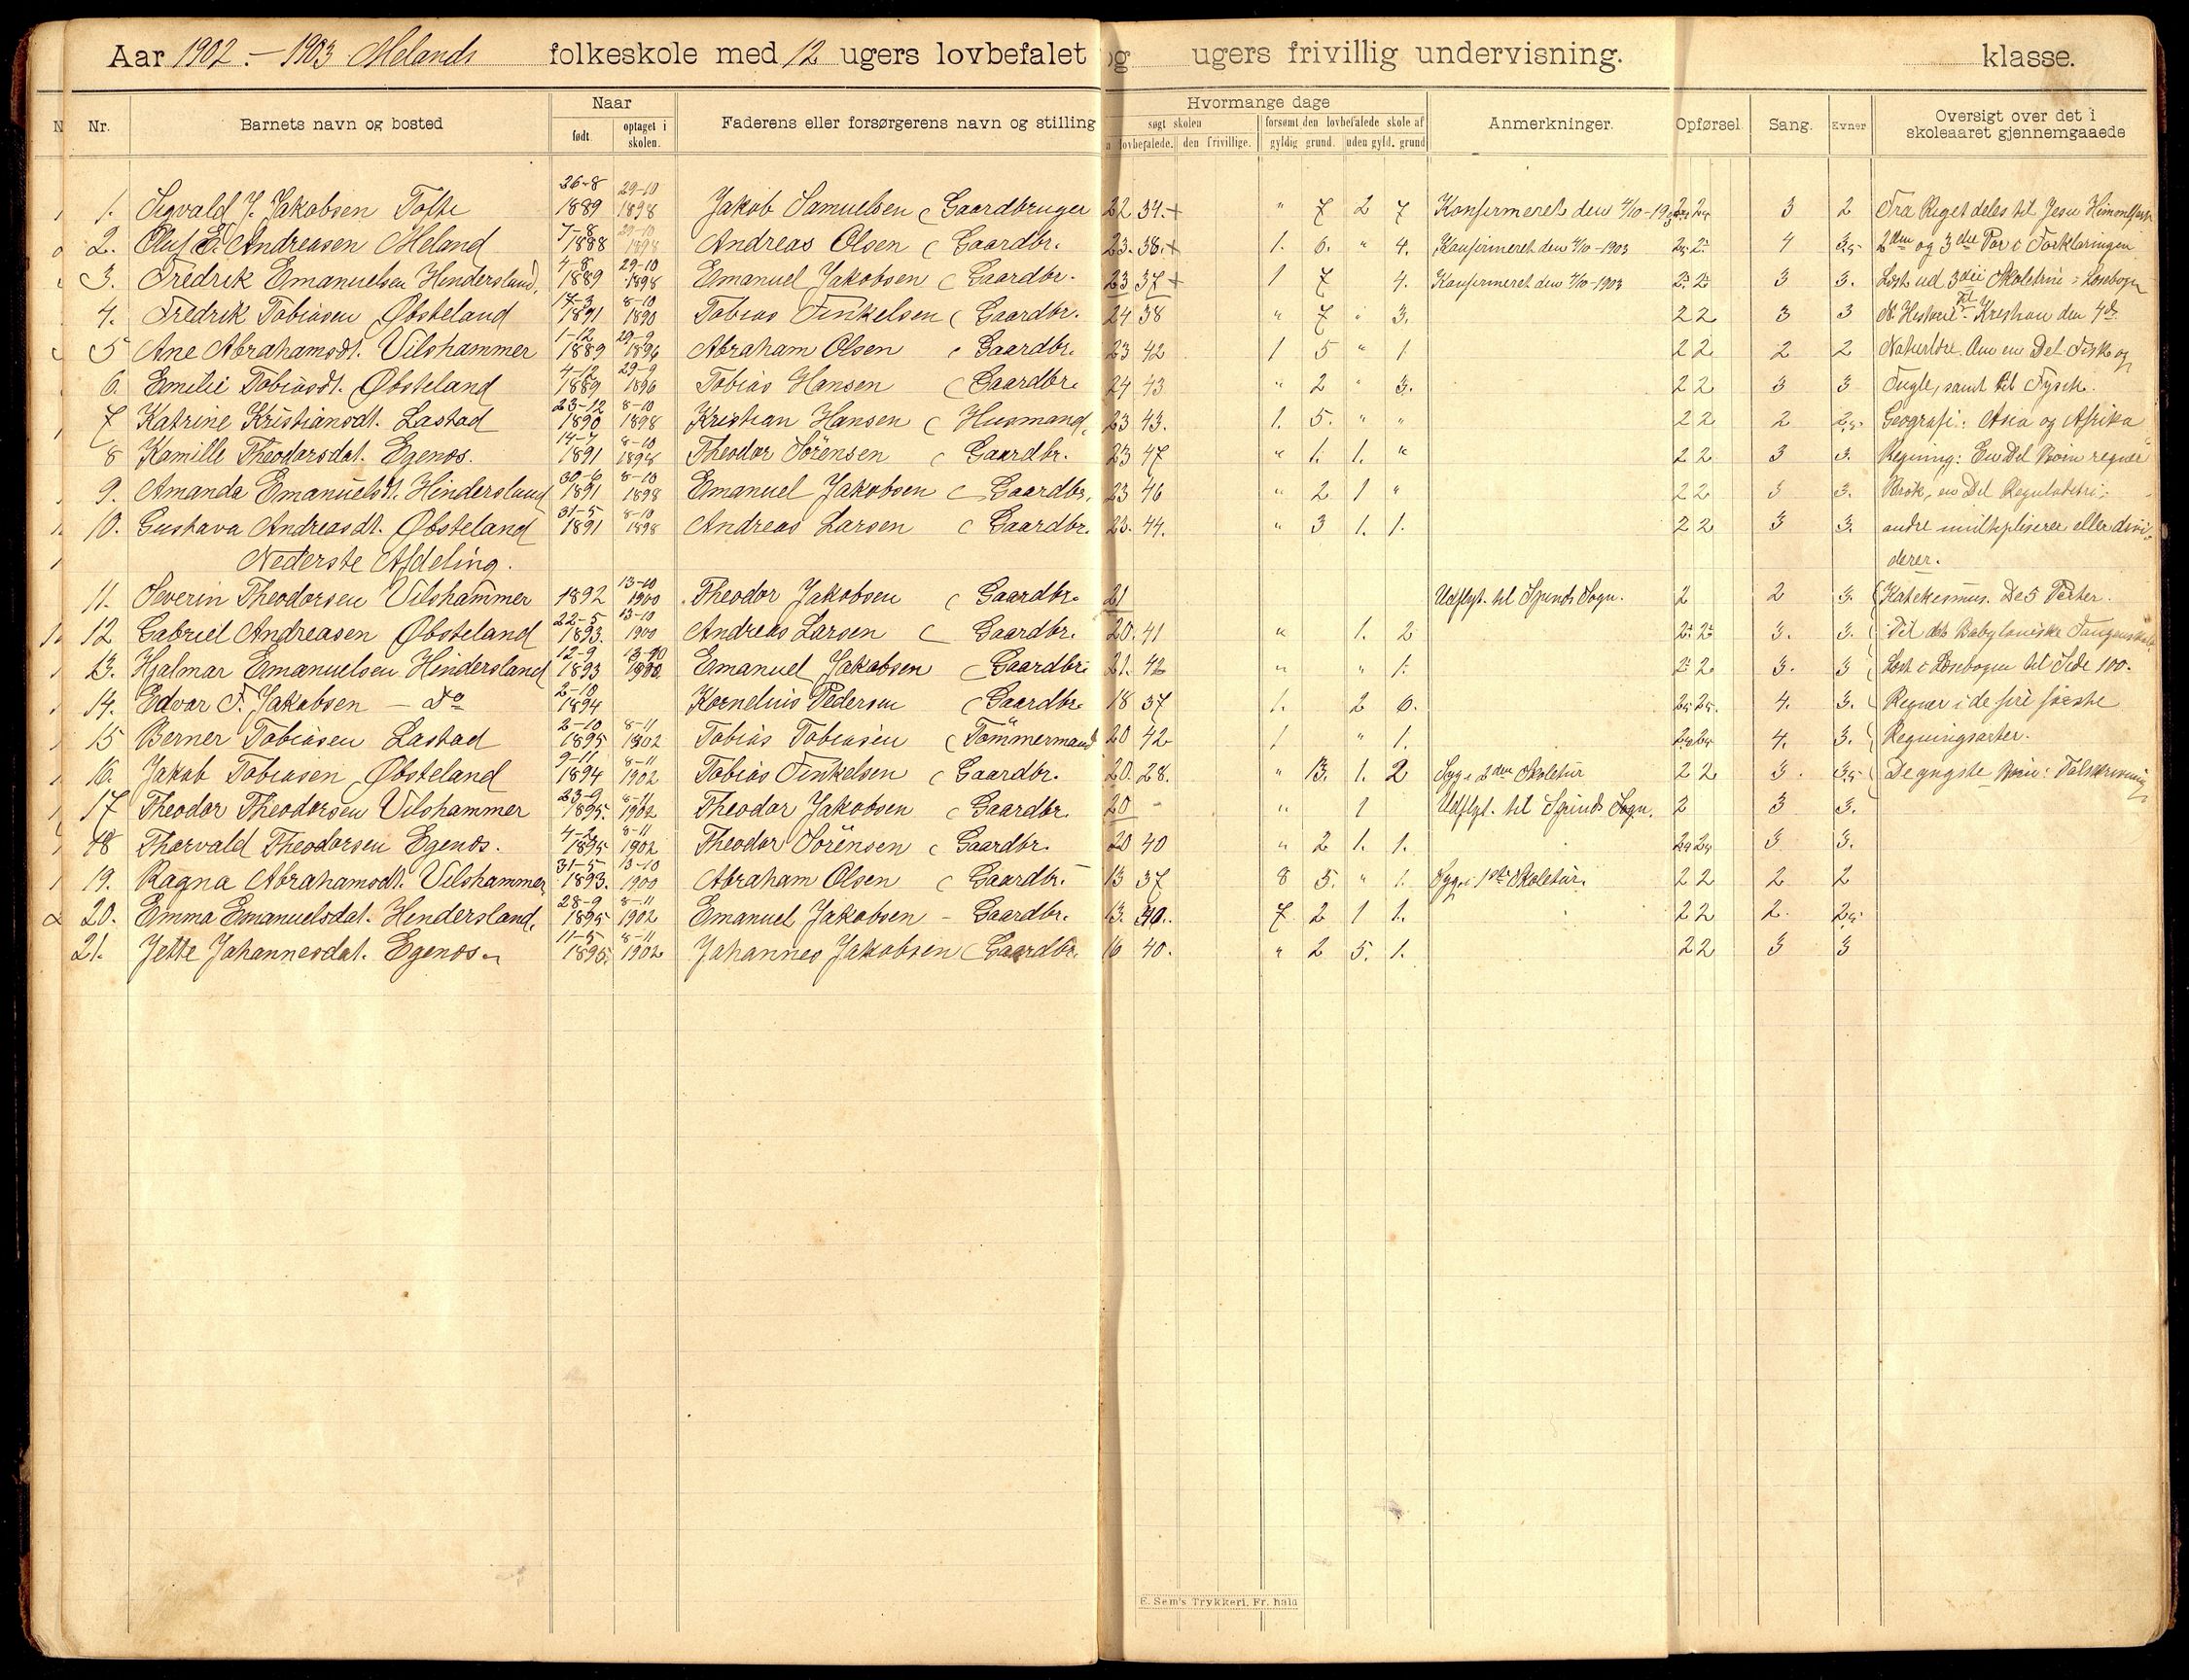 Aar 1902. – 1903 Melands folkeskole med 12 ugers lovbefalet og ugers frivillig undervisning. klasse.
Nr. Barnets navn og bosted Naar født. optaget i skolen. Faderens eller forsørgerens navn og stilling Hvormange dage søgt skolen lovbefalede. den frivillige. forsømt den lovbefalede skole af gyldig grund. uden gyld. grund Anmerkninger. Opførsel. Sang. Evner Oversigt over det i skoleaaret gjennemgaaede
1. Sigvald J. Jakobsen Tofte 26-8 1889 29-10 1898 Jakob Samuelsen Gaardbruger 22 34.+ " 7 2 7 Konfirmeret den 3 2 Fra Riget deles til Jesu
2. Oluf E. Andreasen Meland 7-8 1888 29-10 1898 Andreas Olsen Gaardbr. 23. 38.+ 1. 6. " 4. Konfirmeret den 4/10-1903 4 2den og 3die Par i Forklaringen
3. Fredrik Emanuelsen Hindersland, 4-8 1889 29-10 1898 Emanuel Jakobsen Gaardbr. 23 37+ 1 7 4. Konfirmeret den 4/10-1903 3 3. Læst ud 3die Skoletrin i Læsebogen
4. Fredrik Tobiasen Øbsteland 17-3 1891 8-10 1890 Tobias Finkelsen Gaardbr. 24 38 " 7 3. 2 2 3 3 N. Historie Til Kristian den 4de
5 Ane Abrahamsdt. Vilshammer 1-12 1889 29-9 1896 Abraham Olsen Gaardbr. 23 42 1 5 " 1 2 2 2 2 Naturlære. Om en Del Fisk og
6. Emilie Tobiasdt. Øbsteland 4-12 1889 29-9 1896 Tobias Hansen Gaardbr. 24 43 " 2 " 3. 2 2 3 3 Fugle, samt lit Fysik.
7 Katrine Kristiansdt. Lastad 23-12 1890 8-10 1898 Kristian Hansen Husmand. 23 43. 1. 5. " " 2 2 2 Geografi: Asia og Afrika
8 Kamille Theodorsdat. Egenos. 14-7 1891 8-10 1898 Theodor Sörensen Gaardbr. 23 47 " 1. 1. " 2 2 3 3. Regning: En Del Børn regner
9. Amanda Emanuelsdt. Hindersland 30-6 1891 8-10 1898 Emanuel Jakobsen Gaardbr. 23 46 " 2 1 " 2 2 3 3. Brøk, en Del Reguladetri,
10. Gustava Andreasdt. Øbsteland 31-5 1891 8-10 1898 Andreas Larsen Gaardbr. 23. 44. " 3 1. 1. 2 2 3 3. andre multipliserer eller divi-
Nederste Afdeling. derer.
11. Severin Theodorsen Vilshammer 1892 13-10 1900 Theodor Jakobsen Gaardbr. 21 Udflyt. til Spinds Sogn. 2 2 3. Katekismus. De 5 Parter.
12 Gabriel Andreasen Øbsteland 22-5 1893. 13-10 1900 Andreas Larsen Gaardbr. 20. 41 " 1. 2 3. 3. Til det Babyloniske Fangenskab
13. Hjalmar Emanuelsen Hindersland 12-9 1893 13-10 1900 Emanuel Jakobsen Gaardbr. 21. 42 " " 1. 3. 3 Læst i Læsebogen til Side 100.
14. Edvar F. Jakobsen – do 2-10 1894 Kornelius Pedersen Gaardbr. 18 37 1. 2 6. 4. 3. Regner i de fire første
15 Berner Tobiasen Lastad 2-10 1895 8-11 1902 Tobias Tobiasen Tömmermand 20 42 1 " 1. 4. 3. Regningsarter.
16. Jakob Tobiasen Øbsteland 9-11 1894 8-11 1902 Tobias Finkelsen Gaardbr. 20. 28. " 13. 1. 2 Syg i 2den Skoletur 2 2 3. De yngste Børn: Talskrivning
17 Theodor Theodorsen Vilshammer 23-9 1895. 8-11 1902 Theodor Jakobsen Gaardbr. 20 - " 1 Udflyt. til Spinds Sogn. 2 3 3.
18 Thorvald Theodorsen Egenos. 4-2 1895 8-11 1902 Theodor Sörensen Gaardbr. 20 40 " 2 1. 1. 3 3.
19. Ragna Abrahamsdt. Vilshammer 31-5 1893. 13-10 1900 Abraham Olsen Gaardbr. 13 37 8 5. " 1. Syg i 1ste Skoletur. 2 2 2 2
20. Emma Emanuelsdat. Hindersland. 28-9 1895 8-11 1902 Emanuel Jakobsen – Gaardbr. 13. 40. 7 2 1 1. 2 2 2.
21. Jette Johannesdat. Egenos. 11-5 1895. 8-11 1902 Johannes Jakobsen Gaardbr. 16 40. " 2 5. 1. 2 2 3 3
E. Sem's Trykkeri, Fr. hald